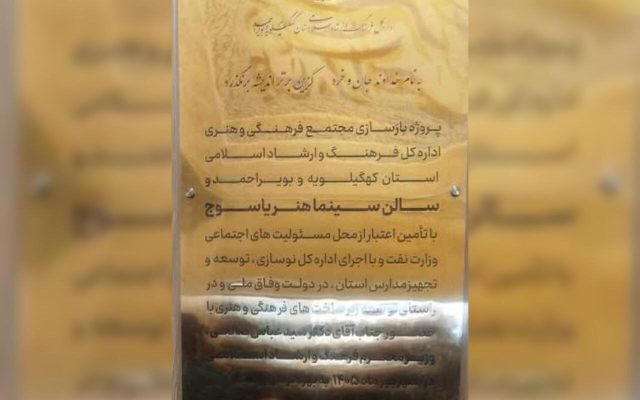 به نام خداوند جان و خرد کزین برتر اندیشه برنگذرد
پروژه بازسازی مجتمع فرهنگی و هنری
اداره کل فرهنگ و ارشاد اسلامی
استان کهگیلویه و بویراحمد و
سالن سینما هنر یاسوج
با تأمین اعتبار از محل مسئولیت های اجتماعی
وزارت نفت و با اجرای اداره کل نوسازی ، توسعه و
تجهیز مدارس استان ، در دولت وفاق ملی و در
راستای توسعه زیرساخت های فرهنگی و هنری با
حضور جناب آقای دکتر سید عباس صالحی
وزیر محترم فرهنگ و ارشاد اسلامی
ماه ۱۴۰۵ به بهره